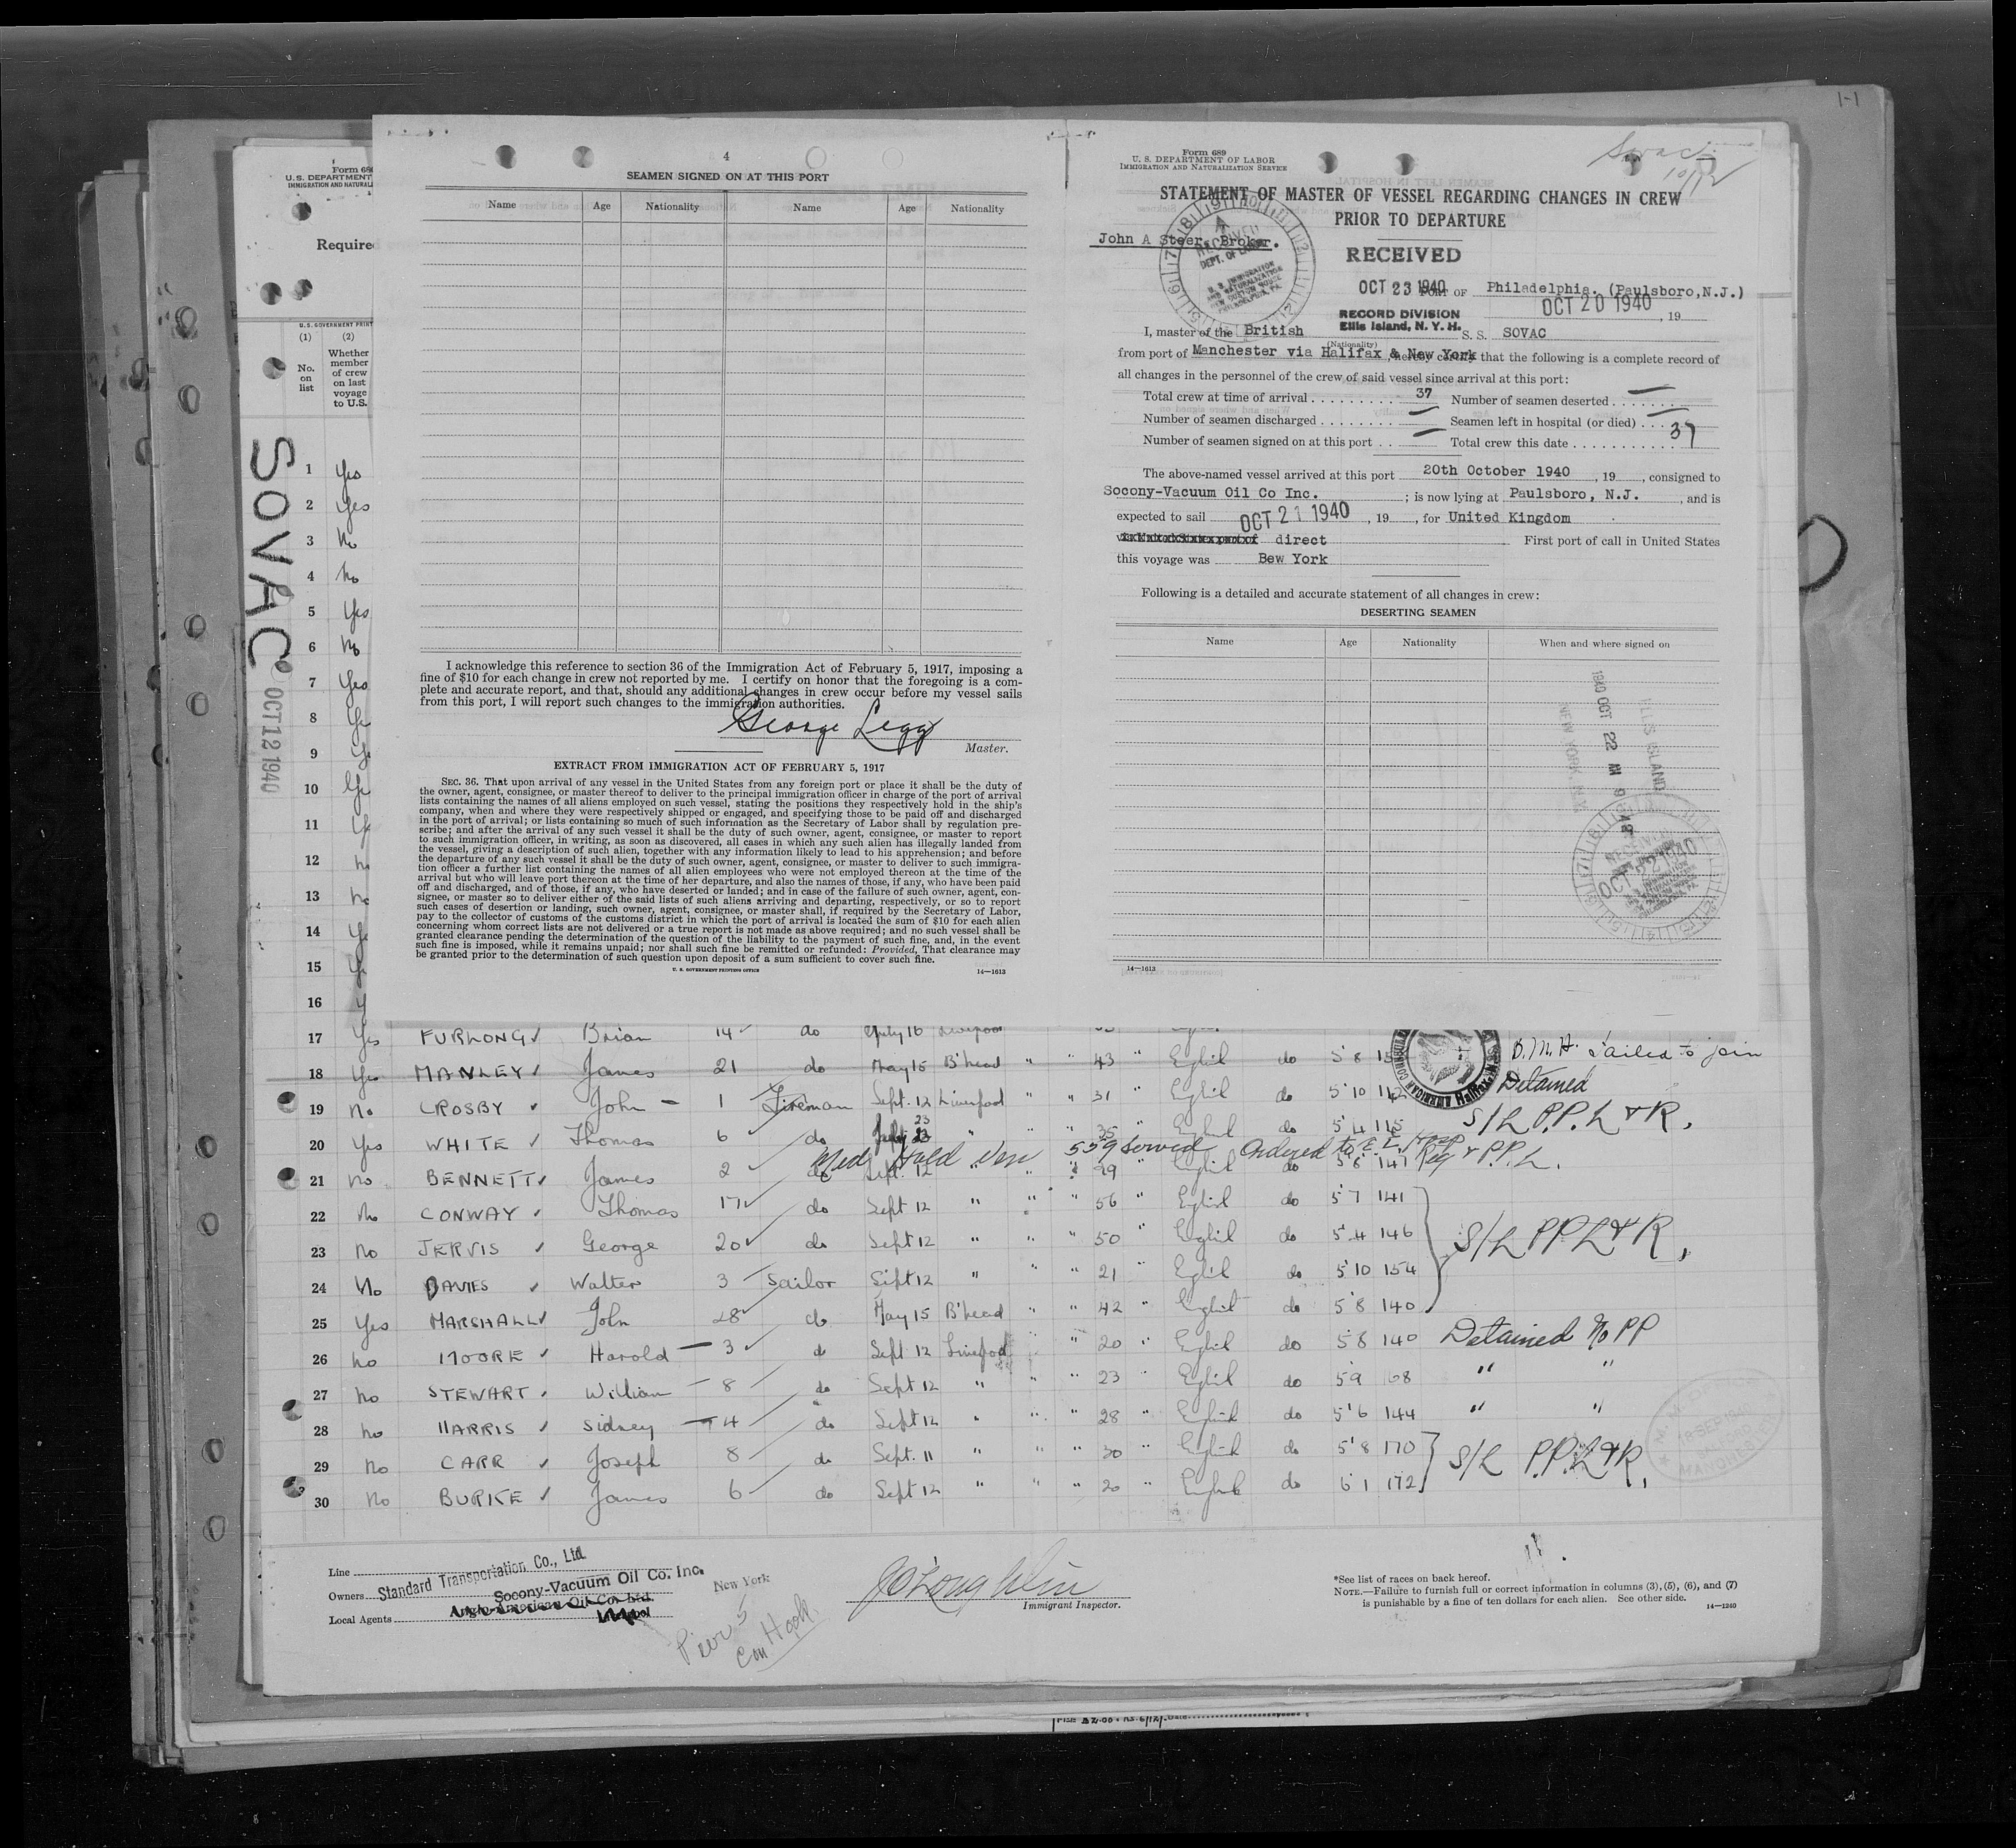 1-1
Form 68
U.S. DEPARTMENT
IMMIGRATION AND NATURALI
Require
U.S. GOVERNMENT PRINT
(1) (2)
No. on list
Whether member of crew on last voyage to U.S.
SOVAC
OCT 12 1940
1 Yes
2 Yes
3 No
4 No
5 Yes
6 No
7 Yes
8 Ye
9 Ye
10 Ye
11 Ye
12 n
13 n
14 Ye
15 Ye
16 Y
4
SEAMEN SIGNED ON AT THIS PORT
Name Age Nationality Name Age Nationality
I acknowledge this reference to section 36 of the Immigration Act of February 5, 1917, imposing a
fine of $10 for each change in crew not reported by me. I certify on honor that the foregoing is a com-
plete and accurate report, and that, should any additional changes in crew occur before my vessel sails
from this port, I will report such changes to the immigration authorities.
George Legg
Master.
EXTRACT FROM IMMIGRATION ACT OF FEBRUARY 5, 1917
SEC. 36. That upon arrival of any vessel in the United States from any foreign port or place it shall be the duty of
the owner, agent, consignee, or master thereof to deliver to the principal immigration officer in charge of the port of arrival
lists containing the names of all aliens employed on such vessel, stating the positions they respectively hold in the ship's
company, when and where they were respectively shipped or engaged, and specifying those to be paid off and discharged
in the port of arrival; or lists containing so much of such information as the Secretary of Labor shall by regulation pre-
scribe; and after the arrival of any such vessel it shall be the duty of such owner, agent, consignee, or master to report
to such immigration officer, in writing, as soon as discovered, all cases in which any such alien has illegally landed from
the vessel, giving a description of such alien, together with any information likely to lead to his apprehension; and before
the departure of any such vessel it shall be the duty of such owner, agent, consignee, or master to deliver to such immigra-
tion officer a further list containing the names of all alien employees who were not employed thereon at the time of the
arrival but who will leave port thereon at the time of her departure, and also the names of those, if any, who have been paid
off and discharged, and of those, if any, who have deserted or landed; and in case of the failure of such owner, agent, con-
signee, or master so to deliver either of the said lists of such aliens arriving and departing, respectively, or so to report
such cases of desertion or landing, such owner, agent, consignee, or master shall, if required by the Secretary of Labor,
pay to the collector of customs of the customs district in which the port of arrival is located the sum of $10 for each alien
concerning whom correct lists are not delivered or a true report is not made as above required; and no such vessel shall be
granted clearance pending the determination of the question of the liability to the payment of such fine, and, in the event
such fine is imposed, while it remains unpaid; nor shall such fine be remitted or refunded: Provided, That clearance may
be granted prior to the determination of such question upon deposit of a sum sufficient to cover such fine.
U. S. GOVERNMENT PRINTING OFFICE 14—1613
Form 689
U. S. DEPARTMENT OF LABOR
IMMIGRATION AND NATURALIZATION SERVICE
Sovac
10/12
STATEMENT OF MASTER OF VESSEL REGARDING CHANGES IN CREW
PRIOR TO DEPARTURE
John A Steer, Broker.
RECEIVED
OCT 23 1940
RECORD DIVISION
Ellis Island, N. Y. H.
PORT OF Philadelphia. (Paulsboro,N.J.)
OCT 20 1940, 19
I, master of the British S. S. SOVAC
(Nationality)
from port of Manchester via Halifax & New York, hereby certify that the following is a complete record of
all changes in the personnel of the crew of said vessel since arrival at this port:
Total crew at time of arrival 37 Number of seamen deserted —
Number of seamen discharged — Seamen left in hospital (or died) —
Number of seamen signed on at this port — Total crew this date 37
The above-named vessel arrived at this port 20th October 1940, 19, consigned to
Socony-Vacuum Oil Co Inc.; is now lying at Paulsboro, N.J., and is
expected to sail OCT 21 1940, 19, for United Kingdom
direct First port of call in United States
this voyage was Bew York
Following is a detailed and accurate statement of all changes in crew:
DESERTING SEAMEN
Name Age Nationality When and where signed on
1940 OCT 22 AM 9 48
ELLIS ISLAND
NEW YORK
RECEIVED
OCT 22 1940
14—1613
17 Yes FURLONG Brian 14 do July 16 Liverpool
18 Yes MANLEY James 21 do May 15 B'head " " 43 " English do 5'8 15 Failed to join
19 No CROSBY John — 1 Fireman Sept. 12 Liverpool " " 31 " English do 5'10 112 Detained
20 Yes WHITE Thomas 6 do July 23 " " " 35 " English do 5'4 115 S/L P.P.L & R.
Med Hold 559 Served Ordered to E.I. Hosp
21 No BENNETT James 2 do Sept. 12 " " " 29 " English do 5'8 141 Reg & P.P.L.
22 No CONWAY Thomas 17 do Sept 12 " " " 56 " English do 5'7 141
23 No JERVIS George 20 do Sept 12 " " " 50 " English do 5'4 146 S/L P P L & R.
24 No DAVIES Walter 3 Sailor Sept 12 " " " 21 " English do 5'10 154
25 Yes MARSHALL John 28 do May 15 B'head " " 42 " English do 5'8 140
26 No MOORE Harold — 3 do Sept 12 Liverpool " " 20 " English do 5'8 140 Detained No PP
27 No STEWART William — 8 do Sept 12 " " " 23 " English do 5'9 168 " "
28 No HARRIS Sidney — 4 do Sept 12 " " " 28 " English do 5'6 144 " "
29 No CARR Joseph 8 do Sept. 11 " " " 30 " English do 5'8 170 S/L P.P.L & R.
30 No BURKE James 6 do Sept 12 " " " 20 " English do 6'1 172
Line
Owners Standard Transportation Co., Ltd.
Socony-Vacuum Oil Co. Inc.
Local Agents Anglo-American Oil Co. Ltd.
New York
Pier 5
Con Hook
J O'Loughlin
Immigrant Inspector.
*See list of races on back hereof.
NOTE.—Failure to furnish full or correct information in columns (3), (5), (6), and (7)
is punishable by a fine of ten dollars for each alien. See other side.
14—1240